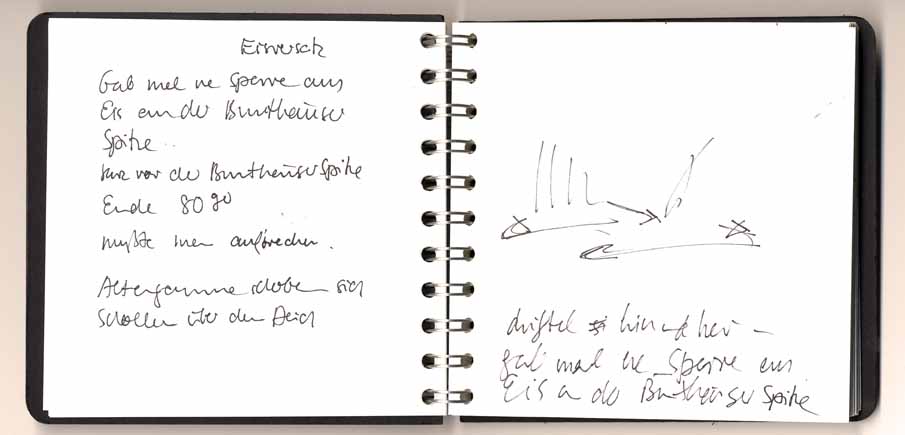 Eisversatz
Gab mal ne Sperre aus
Eis an der Bunthäuser
Spitze..
kurz vor der Bunthäuser Spitze
Ende 80ger
mußte man aufbrechen.
Altengamme schoben sich
Schollen über den Deich
driftet hin & her –
gab mal ne Sperre aus
Eis an der Bunthäuser Spitze